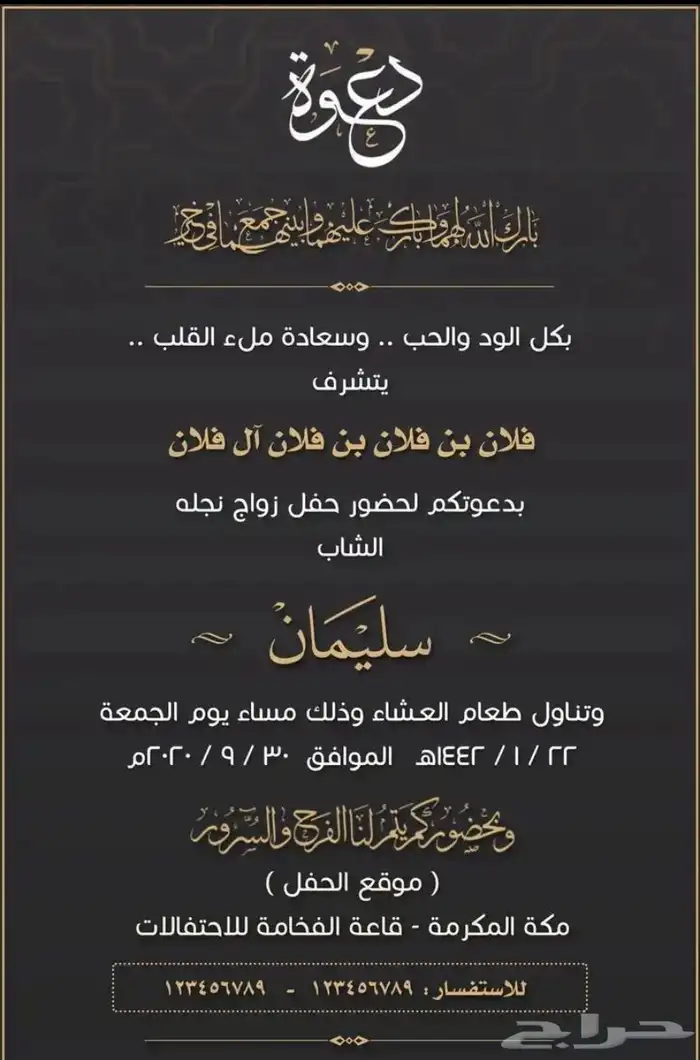 دعوة
بارك الله لهما وبارك عليهما وجمع بينهما في خير
بكل الود والحب .. وسعادة ملء القلب ..
يتشرف
فلان بن فلان بن فلان آل فلان
بدعوتكم لحضور حفل زواج نجله
الشاب
سليمان
وتناول طعام العشاء وذلك مساء يوم الجمعة
٢٢ / ١ / ١٤٤٢هـ الموافق ٣٠ / ٩ / ٢٠٢٠م
وبحضوركم يتم لنا الفرح والسرور
( موقع الحفل )
مكة المكرمة - قاعة الفخامة للاحتفالات
للاستفسار : ١٢٣٤٥٦٧٨٩ - ١٢٣٤٥٦٧٨٩
حراج